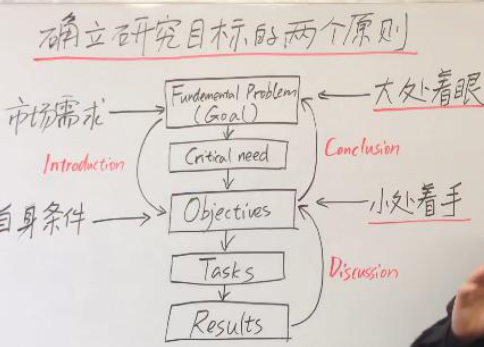 确立研究目标的两个原则
市场需求
Fundemental Problem
(Goal)
大处着眼
Introduction
Critical need
Conclusion
自身条件
Objectives
小处着手
Tasks
Discussion
Results